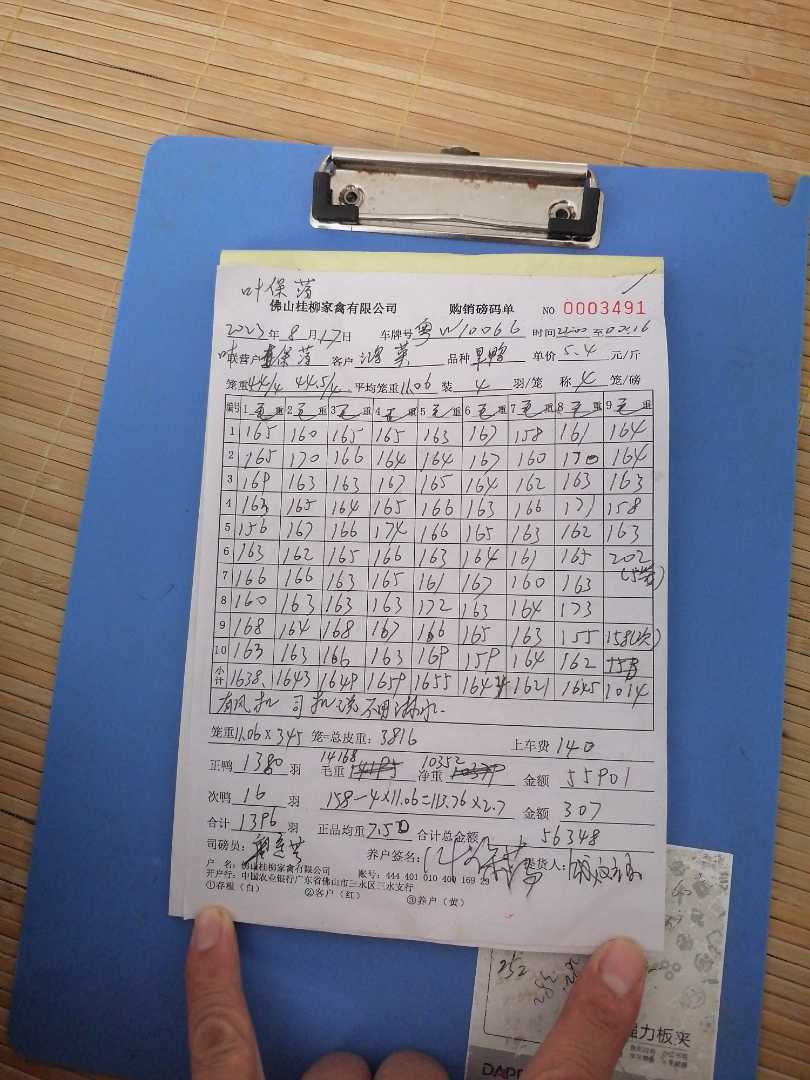 叶保
佛山桂柳家禽有限公司 购销磅码单 NO 0003491
2023年8月17日 车牌号 粤W10066 时间 至
联营户 保 客户 鸿 品种 单价5.4元/斤
笼重44/4 44.5/4 平均笼重11.06 装4羽/笼 称4笼/磅
编号 1毛重 2毛重 3毛重 4毛重 5毛重 6毛重 7毛重 8毛重 9毛重
1 165 160 165 165 163 167 158 161 164
2 165 170 166 164 164 167 160 170 164
3 169 163 163 167 165 164 162 163 163
4 163 165 164 165 166 163 166 171 158
5 156 167 166 174 166 165 163 162 163
6 163 162 165 166 163 164 161 165 202
7 166 166 163 165 161 167 160 163 (5笼)
8 160 163 163 163 172 163 164 173
9 168 164 168 167 166 165 163 155 158(次)
10 163 163 166 163 169 159 164 162 158
小计 1638 1643 1649 1659 1655 1644 1621 1645 1014
有风机 司机说不用淋水.
笼重11.06×345笼=总皮重:3816 上车费140
正鸭1380羽 毛重 14168 净重 10352 金额55901
次鸭16羽 158-4×11.06=113.76×2.7 金额307
合计1396羽 正品均重7.50 合计总金额56348
司磅员: 养户签名: 提货人:
户 名:佛山桂柳家禽有限公司 账号:444 401 010 400 169 29
开户行:中国农业银行广东省佛山市三水区三水支行
①存根(白) ②客户(红) ③养户(黄)
252
强力板夹